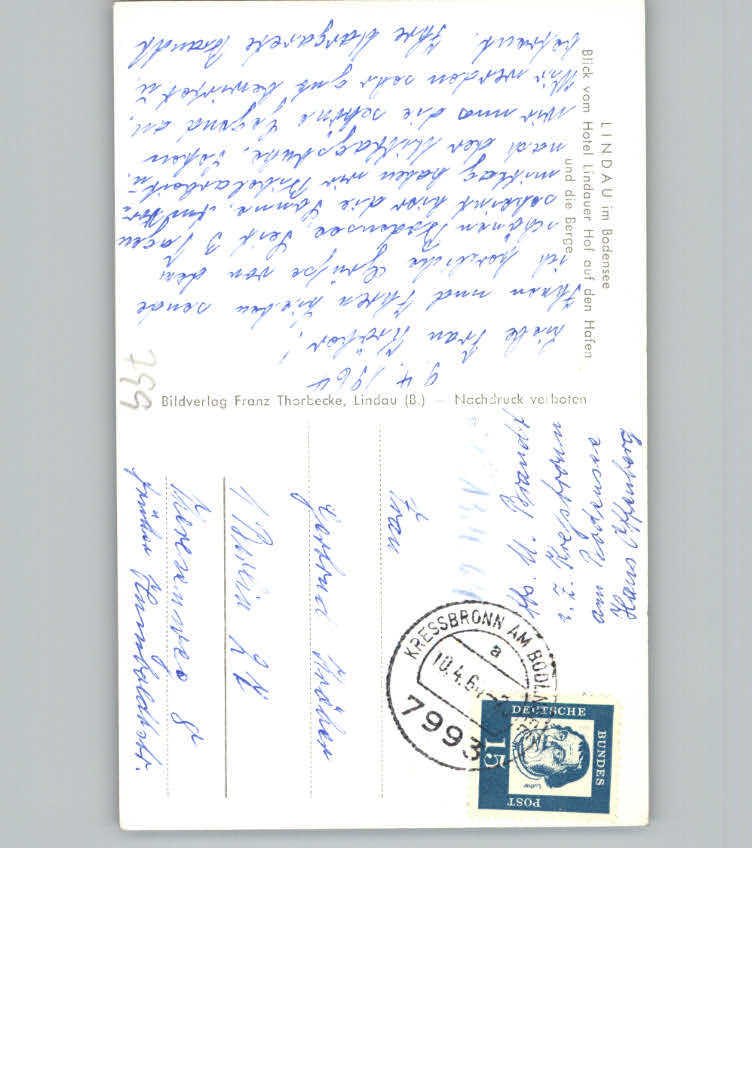 LINDAU im Bodensee
Blick vom Hotel Lindauer Hof auf den Hafen
und die Berge
9.4.1964
Liebe Frau Kröher!
Ihnen und Ihren Lieben sende
ich herzliche Grüße von dem
schönen Bodensee. Seit 3 Tagen
scheint hier die Sonne. Am Vor-
mittag haben wir Bibelarbeit u.
nach der Mittagspause sehen
wir uns die schöne Gegend an.
Wir werden sehr gut bewirtet u.
betreut. Ihre Margarete Brandt
799
Bildverlag Franz Thorbecke, Lindau (B.) – Nachdruck verboten
Abs. M. Brandt
z. Z. Kressbronn
am Bodensee
Haus Iffenberg
Frau
Gertrud Kröher
1 Berlin 27
Miere
früher Humboldtstr.
KRESSBRONN AM BODENSEE
a
10.4.64
7993
DEUTSCHE
BUNDES
POST
15
Luther